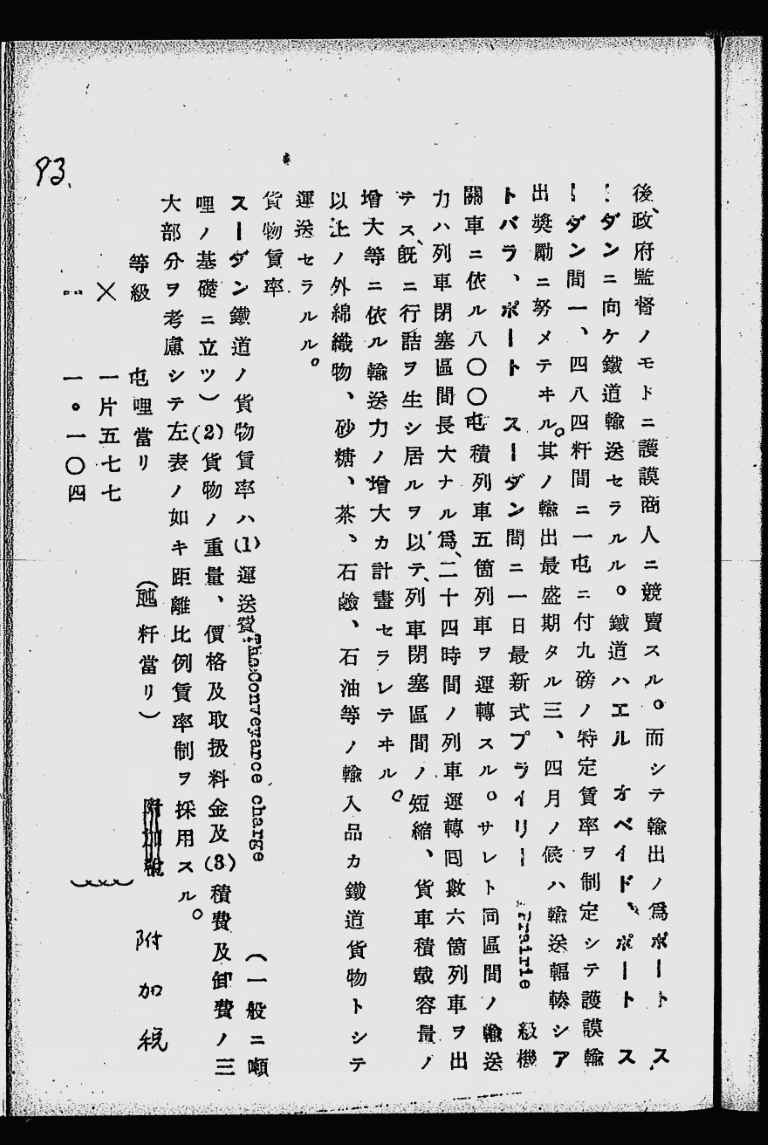 93.
後、政府監督ノモトニ護謨商人ニ競賣スル。而シテ輸出ノ爲ポート ス
ーダンニ向ケ鐵道輸送セラルル。鐵道ハエル オベイド、ポート ス
ーダン間一、四八四粁間ニ一屯ニ付九磅ノ特定賃率ヲ制定シテ護謨輸
出奬勵ニ努メテヰル。其ノ輸出最盛期タル三、四月ノ候ハ輸送輻輳シア
トバラ、ポート スーダン間ニ一日最新式プライリー Prairie 級機
關車ニ依ル八〇〇屯積列車五箇列車ヲ運轉スル。サレト同區間ノ輸送
力ハ列車閉塞區間長大ナル爲、二十四時間ノ列車運轉回數六箇列車ヲ出
テス、既ニ行詰ヲ生シ居ルヲ以テ、列車閉塞區間ノ短縮、貨車積載容量ノ
增大等ニ依ル輸送力ノ增大カ計畫セラレテヰル。
以上ノ外綿織物、砂糖、茶、石鹼、石油等ノ輸入品カ鐵道貨物トシテ
運送セラルル。
貨物賃率
スーダン鐵道ノ貨物賃率ハ(1)運送賃 The Conveyance charge (一般ニ噸
哩ノ基礎ニ立ツ)(2)貨物ノ重量、價格及取扱料金及(3)積費及卸費ノ三
大部分ヲ考慮シテ左表ノ如キ距離比例賃率制ヲ採用スル。
等級 屯哩當リ (瓲粁當リ) 附加稅 附加税
× 一片五七七
一 一。一〇四